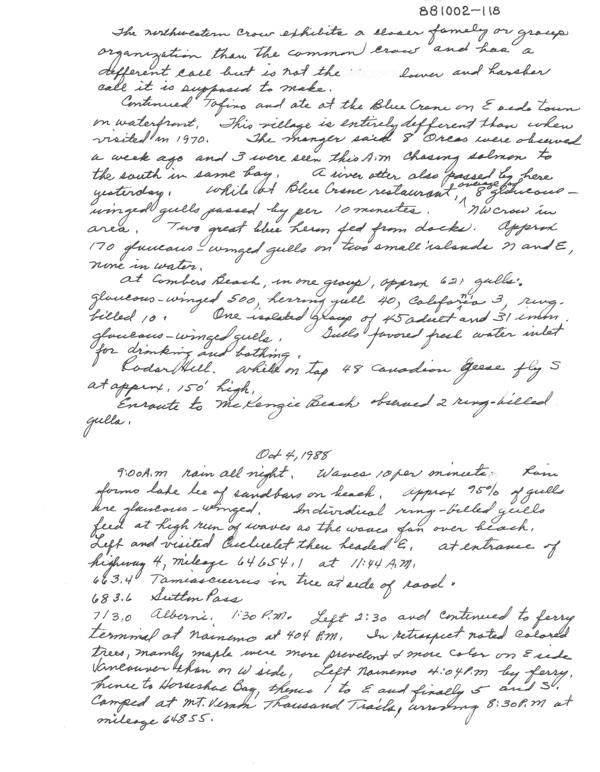 881002-118
The northwestern crow exhibits a closer family or group
organization than the common crow and has a
different call but is not the lower and harsher
call it is supposed to make.
Continued Tofino and ate at the Blue Crane on E side town
on waterfront. This village is entirely different than when
visited in 1970. The manger said 8 Orcas were observed
a week ago and 3 were seen this A.M chasing salmon to
the south in same bay. A river otter also passed by here
yesterday. While at Blue Crane restaurant, average of 8 glaucous-
winged gulls passed by per 10 minutes. NW crow in
area. Two great blue heron fed from docks. Approx
170 glaucous-winged gulls on two small islands N and E,
nine in water.
At Combers Beach, in one group, approx 621 gulls:
glaucous-winged 500, herring gull 40, California 3, ring-
billed 10. One isolated group of 45 adult and 31 imm.
glaucous-winged gulls. Gulls favored fresh water inlet
for drinking and bathing.
Radar Hill. While on top 48 Canadian Geese fly S
at approx. 150' high.
Enroute to McKenzie Beach observed 2 ring-billed
gulls.
Oct 4, 1988
9:00 A.M rain all night. Waves 10 per minute. Rain
forms lake lee of sandbars on beach. Approx 95% of gulls
are glaucous-winged. Individual ring-billed gulls
feed at high run of waves as the waves fan over beach.
Left and visited Ucluelet then headed E. at entrance of
highway 4, mileage 64654.1 at 11:44 A.M.
663.4 Tamiasciurus in tree at side of road.
683.6 Sutton Pass
713.0 Alberni, 1:30 P.M. Left 2:30 and continued to ferry
terminal at Nainemo at 404 P.M. In retrospect noted colored
trees, mainly maple were more prevelent & more color on E side
Vancouver than on W side. Left Nainemo 4:04 P.m by ferry,
hence to Horseshoe Bay, thence 1 to E and finally 5 and S.
Camped at Mt. Vernon Thousand Trails, arriving 8:30 P.M at
mileage 64855.